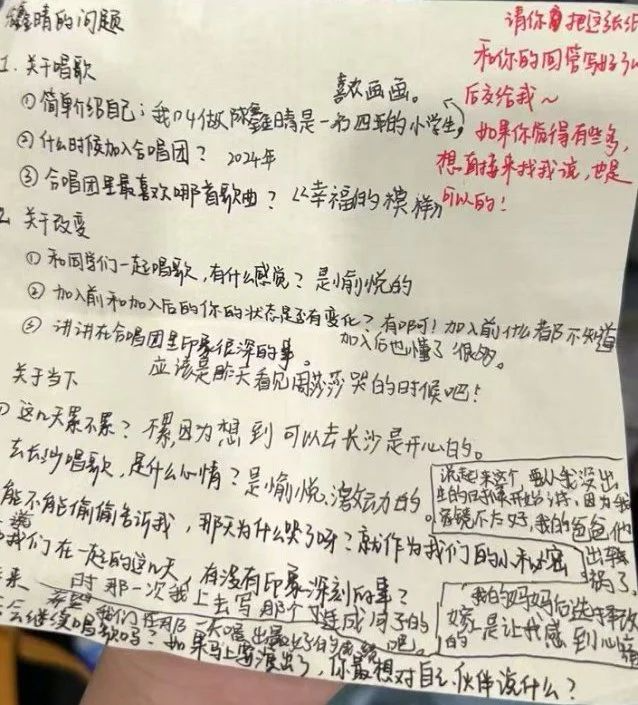 鑫晴的问题
请你把这张纸
和你的回答写好了以
后交给我～
如果你觉得有些多，
想直接来找我说，也是
可以的！
1. 关于唱歌
喜欢画画。
①简单介绍自己；我叫做陈鑫晴是一名四年的小学生，
②什么时候加入合唱团？ 2024年
③合唱团里最喜欢哪首歌曲？《幸福的模样》
2. 关于改变
①和同学们一起唱歌，有什么感觉？是愉悦的
②加入前和加入后的你的状态是否有变化？有啊！加入前什么都不知道
加入后也懂了很多。
③讲讲在合唱团里印象很深的事。
应该是昨天看见周莎莎哭的时候吧！
关于当下
①这几天累不累？不累，因为想到可以去长沙是开心的。
去长沙唱歌，是什么心情？是愉悦，激动的。
能不能偷偷告诉我，那天为什么哭了呀？就作为我们的小秘密
说起来这个，要从我没出
生的时候开始讲，因为我
家境不太好，我的爸爸他
出车
祸了，
我的妈妈后
嫁
的 是让我感到心
我们在一起的这几天，有没有印象深刻的事？
那一次我上去写那个 连成句子的
时
吧。
希望我们在那一天唱出最好的
会继续唱歌吗？如果马上要演出了，你最想对自己伙伴说什么？